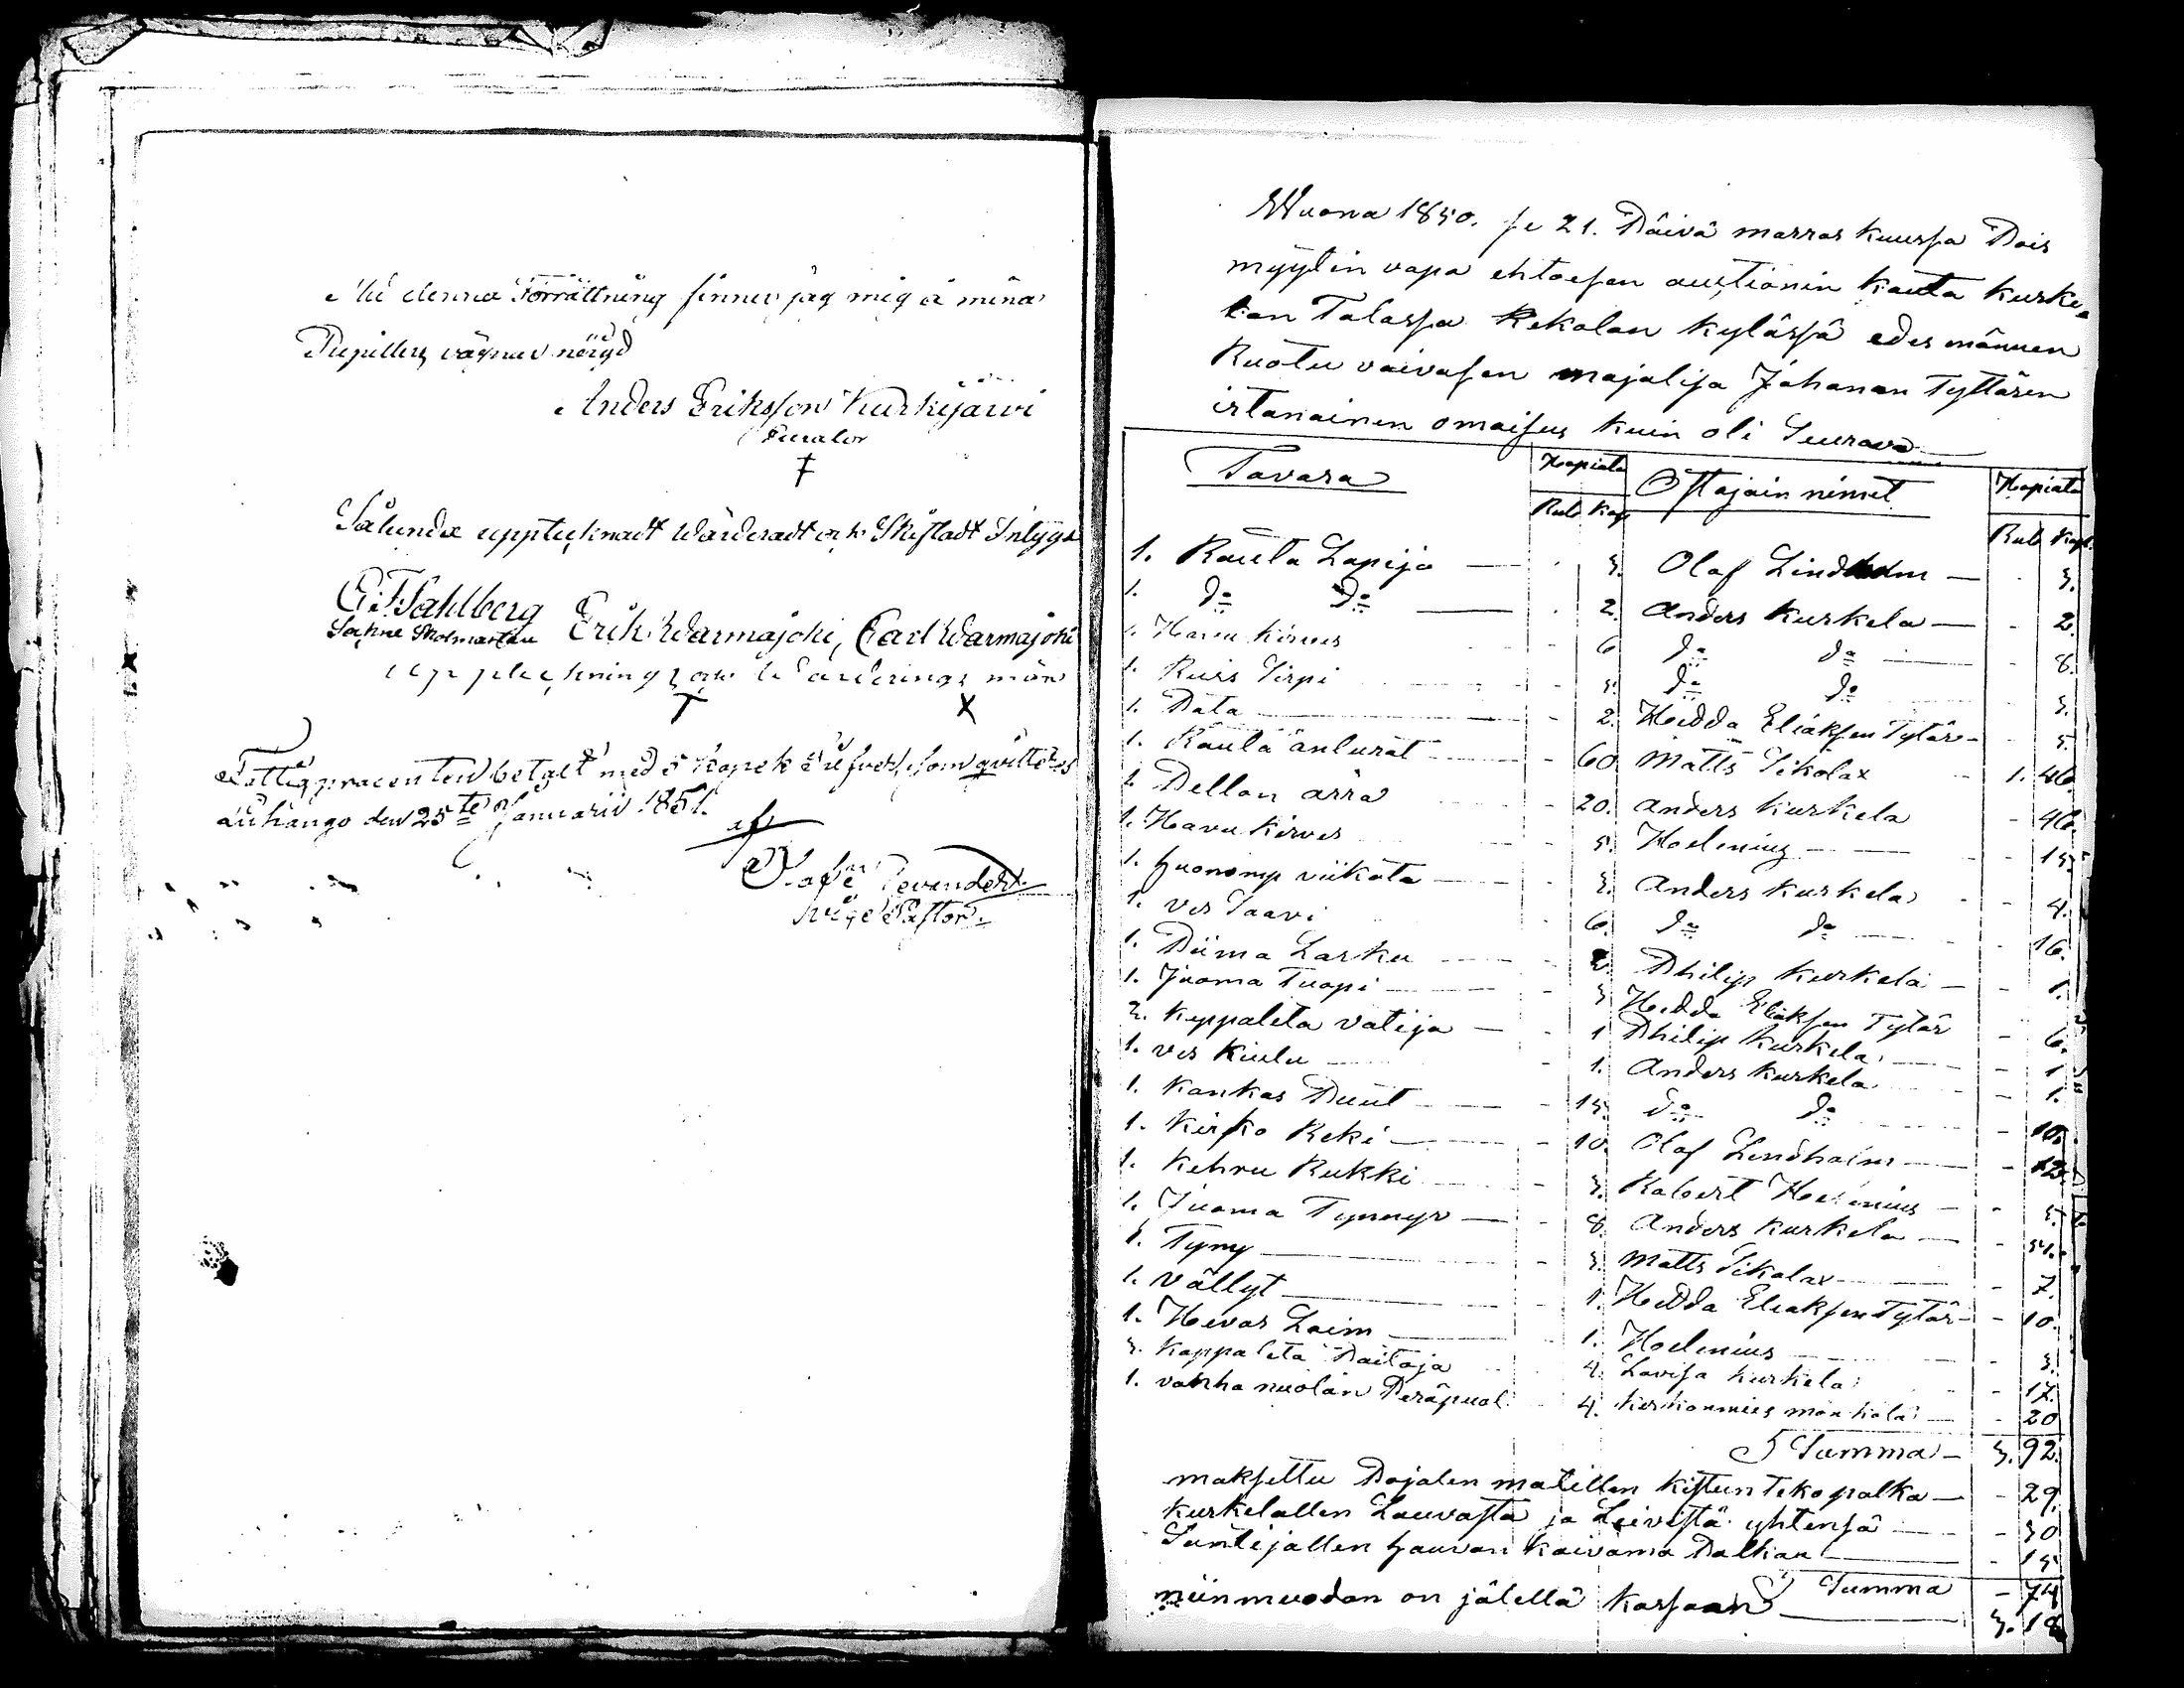 Med denna Förrättning finner jag mig å mina
Pupillers vägnar nöigd
Anders Eriksson Kurkijärwi
Curator
Sålunda upptecknadt wärderadt och Skiftadt Intyga
E. F. Sahlberg Erik Warmajoki, Carl Warmajoki
Sockne Skolmästare
upptecknings och Wärderings män
Fattigprocenten betalt med 5 Kopek Silfver, som quitteras
Lauhango den 25te Januarii 1851.
Vice Pastor.
Wuona 1850. se 21. Päivä marras kuussa Pois
myytin vapa ehtoesen auctionin kauta kurke-
lan Talossa Kekolan kylässä edes männen
Ruotu vaivasen majalisa Johanan Tyttären
irtanainen omaisus kuin oli Seurava
Tavara Hopiata Ostajain nimet Hopiata
Rub Kop Rub Kop.
1. Rauta Lapija — 3. Olaf Lindholm — 3.
1. Do Do — 2. Anders Kurkela — 2.
1. Havu kirves - 6 Do Do — 8.
1. Ruis Sirpi - 3. Do Do - 3.
1. Pata — 2. Hedda Eliaksen Tytär - 5.
1. Raula - 60. Matts Sikolax 1. 46.
1. Pellon ärrä - 20. Anders Kurkela - 46.
1. Havu Kirves 5. Hoelenius - 15.
1. huonomp viikata 3. Anders Kurkela - 4.
1. ves Saavi 6. Do Do - 16.
1. Piima Larku - 2. Philip Kurkela - 1.
1. Juoma Tuopi - 3 Hedda Eliaksen Tytär - 6.
2. Keppaleta vatija - 1 Philip Kurkela - 1
1. ves Kiulu - 1. Anders Kurkela - 1.
1. Kankas Puut - 15. Do Do - 10.
1. Kirko Reki - 10. Olaf Lindholm - 12.
1. Kehru Rukki - 3. Robert Hoelenius - 5.
1. Juoma Tynnyr - 8. Anders Kurkela - 51.
1. Tyny - 3. Matts Sikolax - 7.
1. Vällyt - 1. Hedda Eliaksen Tytär - 10.
1. Hevos Loim - 1. Hoelenius - 3.
3. Kappaleta Paitoja 4. Lovisa Kurkela - 17.
1. vanha nuolan Peräpuol 4. Kirkonmies - 20
Summa - 3. 92.
maksettu Pojalen matillen kistun teko palka - 29.
kurkelallen Lauvasta ja Leivistä yhtensä - 30
Suntijallen hauvan kaivama Palkan - 15
Summa - 74
niinmuodon on jälellä kassaan 3. 18